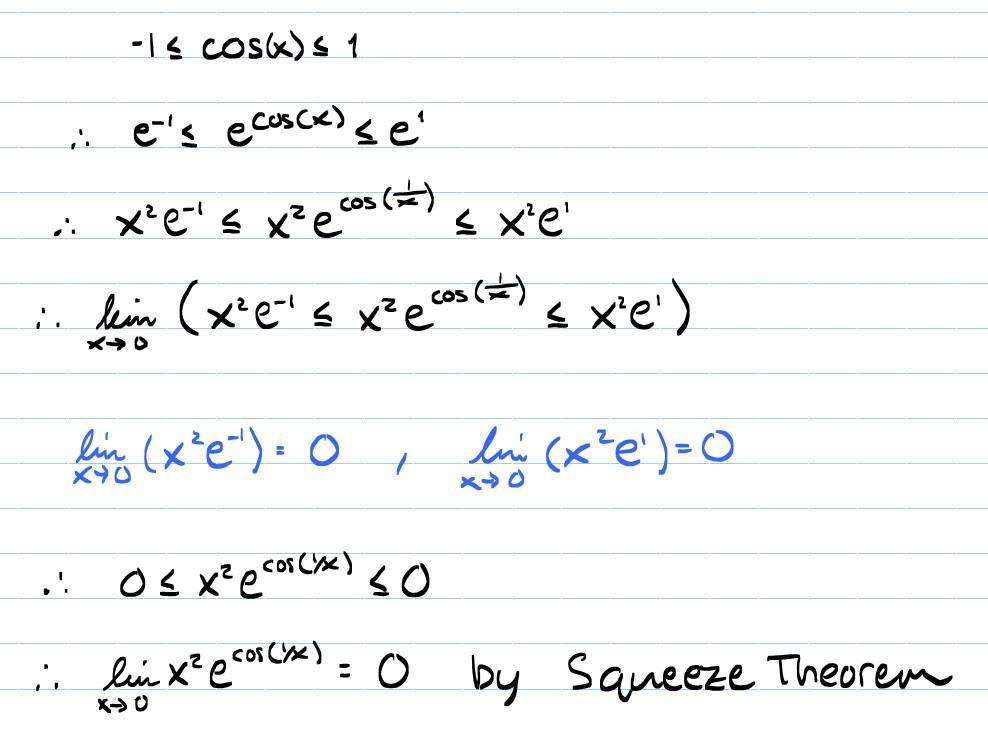 -1 ≤ cos(x) ≤ 1
∴ e⁻¹ ≤ e^cos(x) ≤ e¹
∴ x²e⁻¹ ≤ x²e^cos(1/x) ≤ x²e¹
∴ lim x→0 (x²e⁻¹ ≤ x²e^cos(1/x) ≤ x²e¹)
lim x→0 (x²e⁻¹) = 0 , lim x→0 (x²e¹) = 0
∴ 0 ≤ x²e^cos(1/x) ≤ 0
∴ lim x→0 x²e^cos(1/x) = 0 by Squeeze Theorem